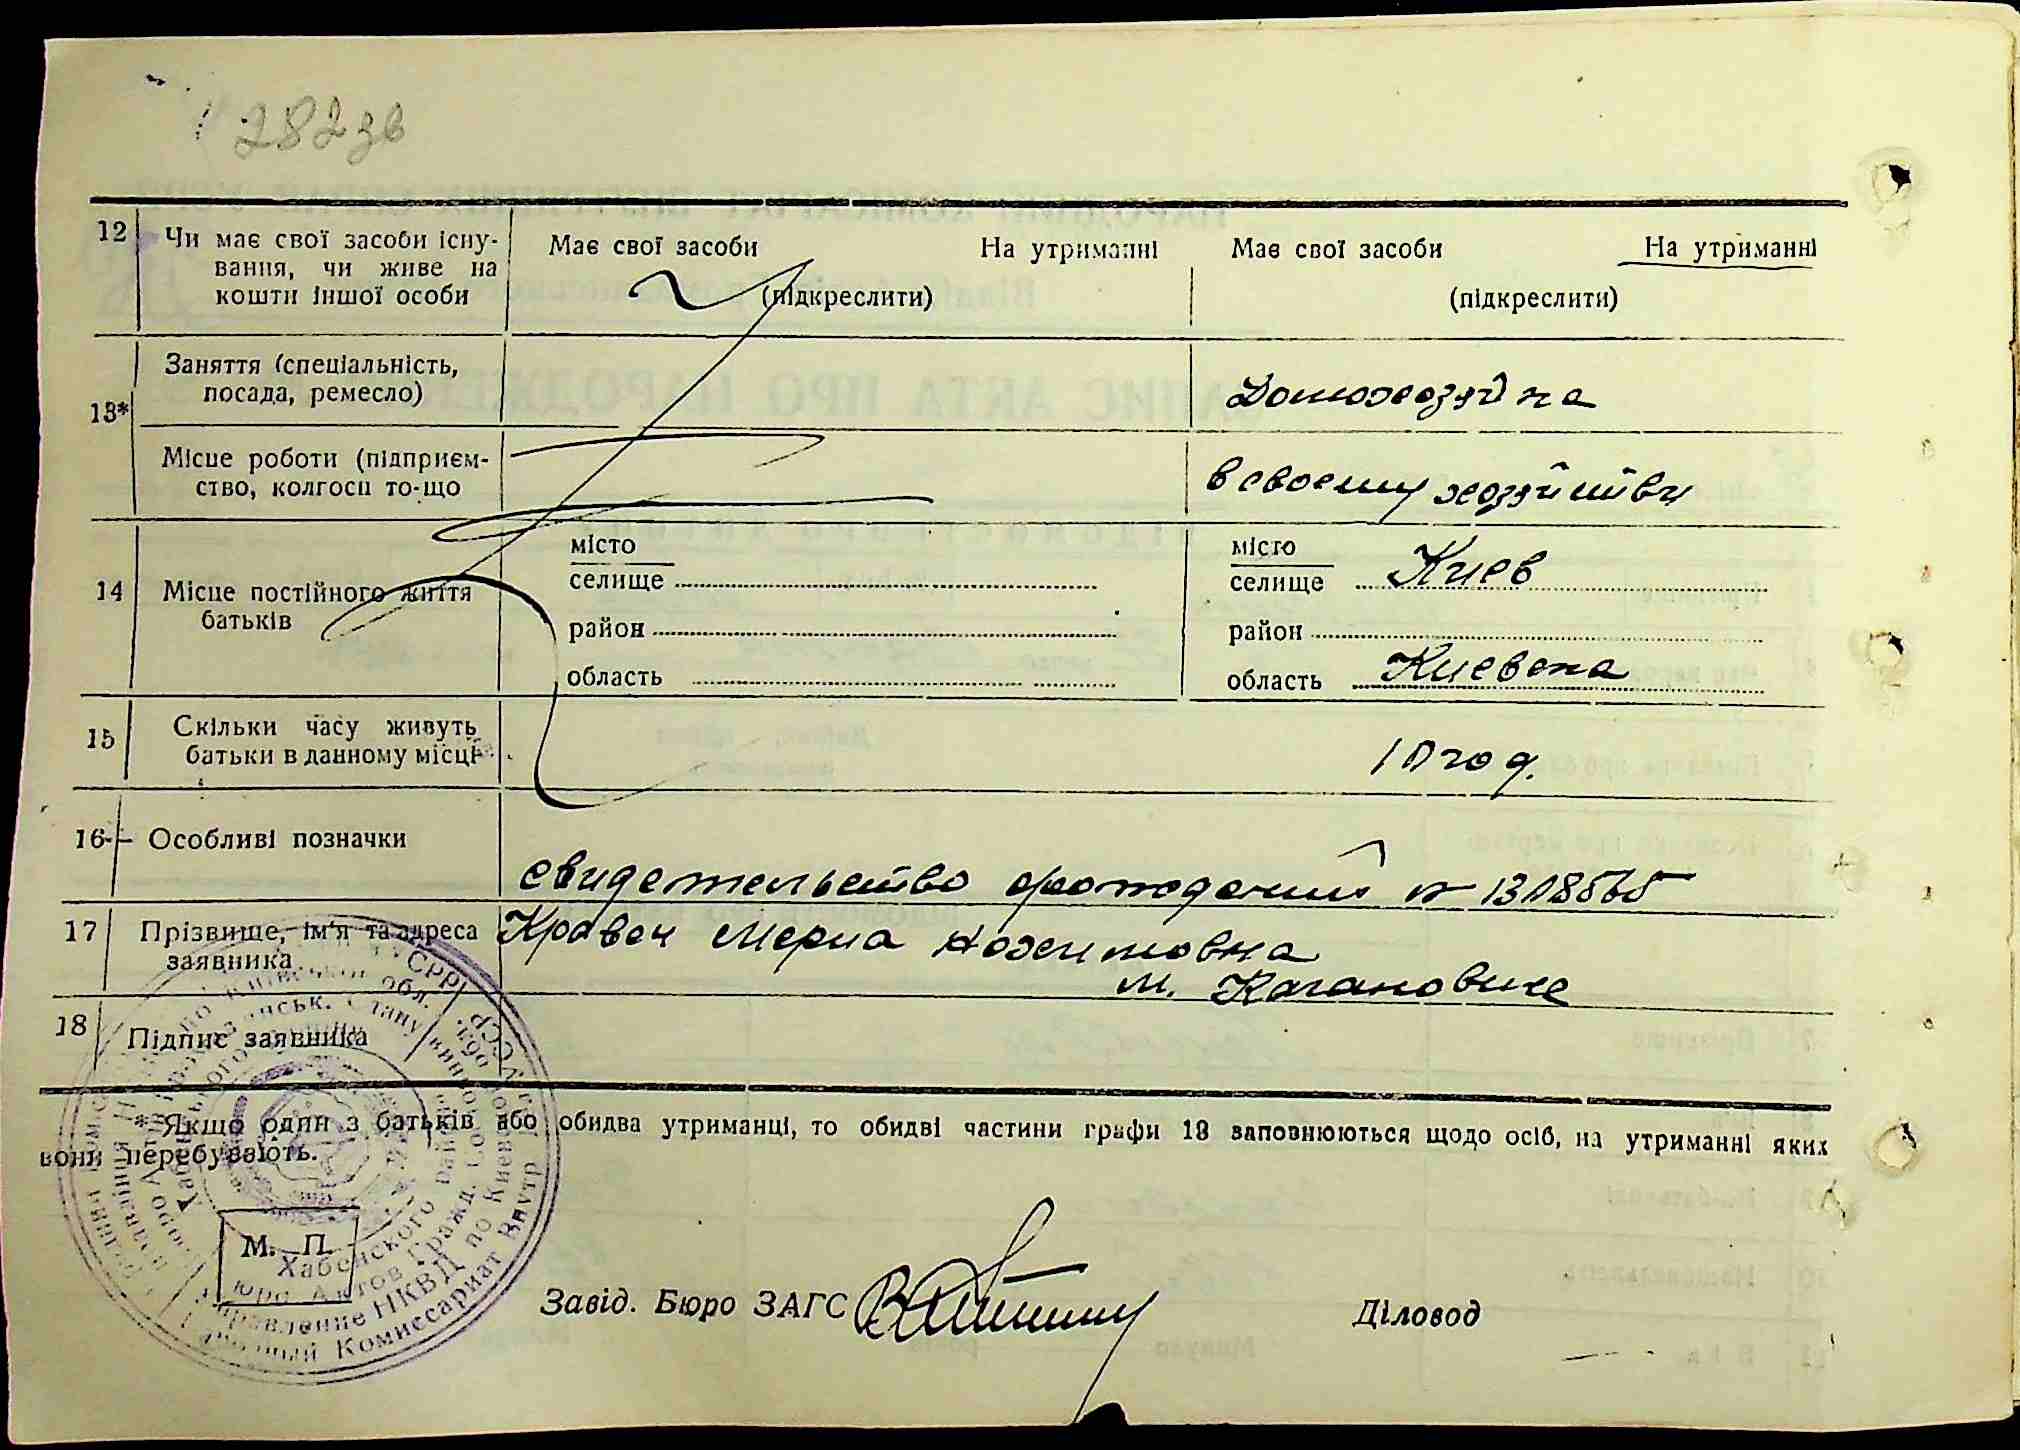 282зв
12 Чи має свої засоби існу- Має свої засоби На утриманні Має свої засоби На утриманні
вання, чи живе на
кошти іншої особи (підкреслити) (підкреслити)
Заняття (спеціальність,
посада, ремесло) Домохозяйка
13*
Місце роботи (підприєм-
ство, колгосп то-що в своему хозяйстви
місто місто
селище селище Киев
14 Місце постійного життя
батьків район район
область область Киевска
15 Скільки часу живуть
батьки в данному місці 10 год.
16 Особливі позначки
свидетельство о рождении №
17 Прізвище, ім'я та адреса Кравец
заявника м. Кагановиче
18 Підпис заявника
* Якщо один з батьків або обидва утриманці, то обидві частини графи 13 заповнюються щодо осіб, на утриманні яких
вони перебувають.
М. П.
Хабенского района
Бюро Актов Гражд.
Управление НКВД по Киевской
Народный Комиссариат Внутр
Завід. Бюро ЗАГС Діловод